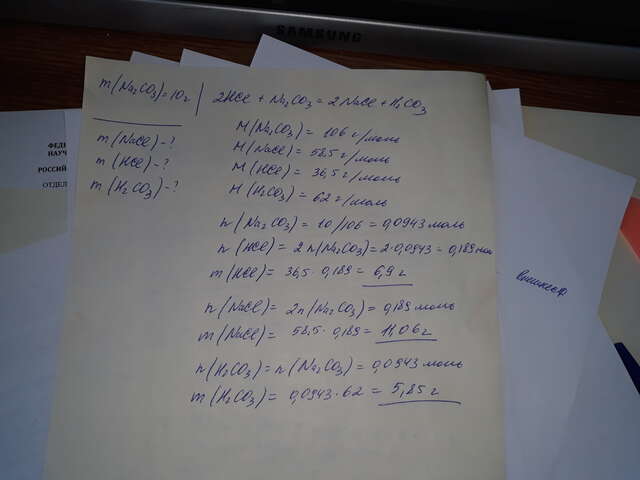 m(Na₂CO₃)=10г
m(NaCl)-?
m(HCl)-?
m(H₂CO₃)-?
2HCl + Na₂CO₃ = 2NaCl + H₂CO₃
M(Na₂CO₃) = 106 г/моль
M(NaCl) = 58,5 г/моль
M(HCl) = 36,5 г/моль
M(H₂CO₃) = 62 г/моль
n(Na₂CO₃) = 10/106 = 0,0943 моль
n(HCl) = 2n(Na₂CO₃) = 2·0,0943 = 0,189 моль
m(HCl) = 36,5·0,189 = 6,9 г
n(NaCl) = 2n(Na₂CO₃) = 0,189 моль
m(NaCl) = 58,5·0,189 = 11,06 г
n(H₂CO₃) = n(Na₂CO₃) = 0,0943 моль
m(H₂CO₃) = 0,0943·62 = 5,85 г
SAMSUNG
ФЕД
НАУЧ
РОССИЙ
ОТДЕЛ